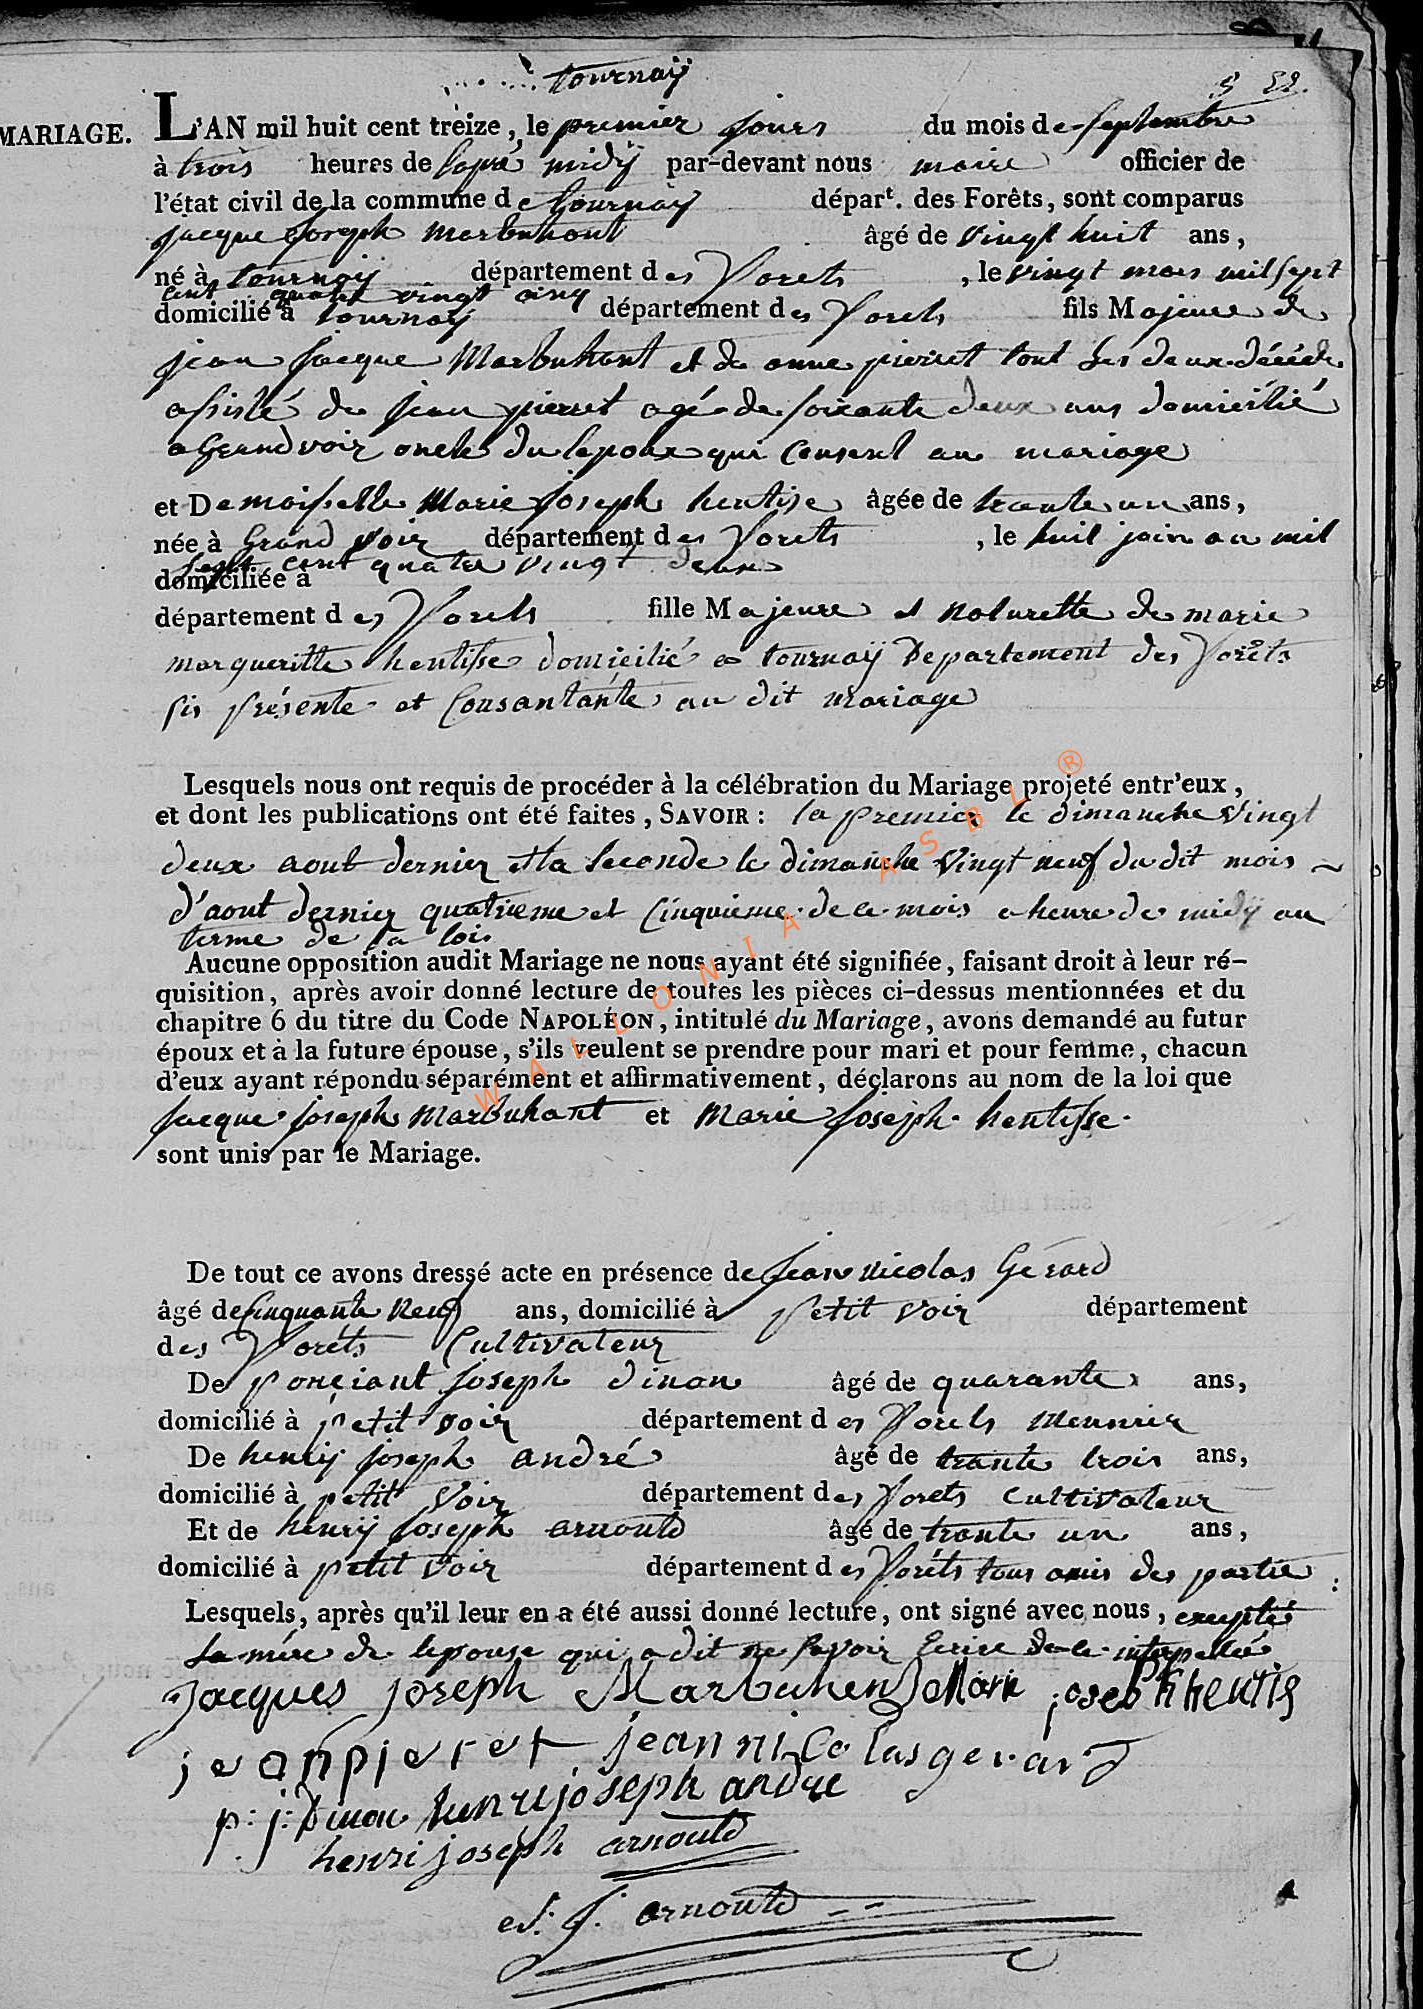 tournaÿ
5 22.
MARIAGE. L'AN mil huit cent treize, le premier jours du mois de septembre
à trois heures de lapré midÿ par-devant nous maire officier de
l'état civil de la commune de tournaÿépart. des Forêts, sont comparus
jacque joseph marbuhant âgé de vingt huit ans,
né à tournaÿ département des Forets, le vingt mars mil sept
cent quatre vingt cinq
domicilié à tournaÿ département des Forets fils Majeure de
jean jacque Marbuhant et de anne pierret tout les deux décéde
assisté de jean pierret agé de soixante deux ans domicilié
a Grandvoir oncle du lepoux qui consent au mariage
et Demoiselle Marie joseph hentise âgée de trante un ans,
née à Grand voir département des Forets, le huit juin an mil
sept cent quatre vingt deux
domiciliée à
département des Forets fille Majeure et naturelle de marie
margueritte hentisse domicilié a tournaÿ Departement des Forêts
sis présente et Consantante au dit mariage
Lesquels nous ont requis de procéder à la célébration du Mariage projeté entr'eux,
et dont les publications ont été faites, SAVOIR: la premier le dimanche vingt
deux aout dernier et la seconde le dimanche vingt neuf du dit mois
d'aout dernier quatrieme et cinquieme de ce mois a heure de midÿ au
terme de la loi
Aucune opposition audit Mariage ne nous ayant été signifiée, faisant droit à leur ré-
quisition, après avoir donné lecture de toutes les pièces ci-dessus mentionnées et du
chapitre 6 du titre du Code NAPOLÉON, intitulé du Mariage, avons demandé au futur
époux et à la future épouse, s'ils veulent se prendre pour mari et pour femme, chacun
d'eux ayant répondu séparément et affirmativement, déclarons au nom de la loi que
jacque joseph Marbuhant et Marie joseph hentisse
sont unis par le Mariage.
De tout ce avons dressé acte en présence de jean nicolas Gérard
âgé de cinquante neuf ans, domicilié à petit voir département
des Foréts Cultivateur
De ponciant joseph dinon âgé de quarante ans,
domicilié à petit voir département des Forets meunier
De henrÿ joseph andré âgé de trante trois ans,
domicilié à petit voir département des Forets cultivateur
Et de henrÿ joseph arnould âgé de trante un ans,
domicilié à petit voir département des Foréts tous amis des partie
Lesquels, après qu'il leur en a été aussi donné lecture, ont signé avec nous, excepté
la mére de lepouse qui a dit ne savoir Ecrire de ce interpellée
jacques joseph Marbuhent Marie joseph hentis
jean pierret jean nicolas gerard
p: j: Dinon henri joseph andre
henri joseph arnould
arnould
WALLONIA ASBL ®